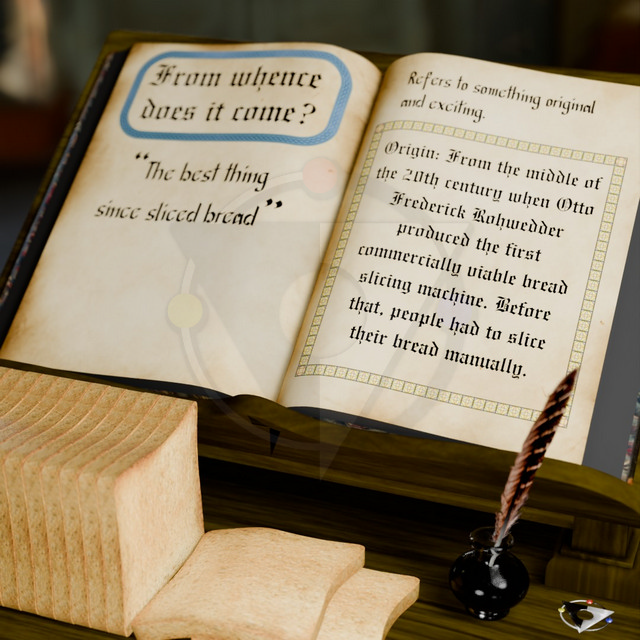 From whence
does it come?
“The best thing
since sliced bread”
Refers to something original
and exciting.
Origin: From the middle of
the 20th century when Otto
Frederick Rohwedder
produced the first
commercially viable bread
slicing machine. Before
that, people had to slice
their bread manually.